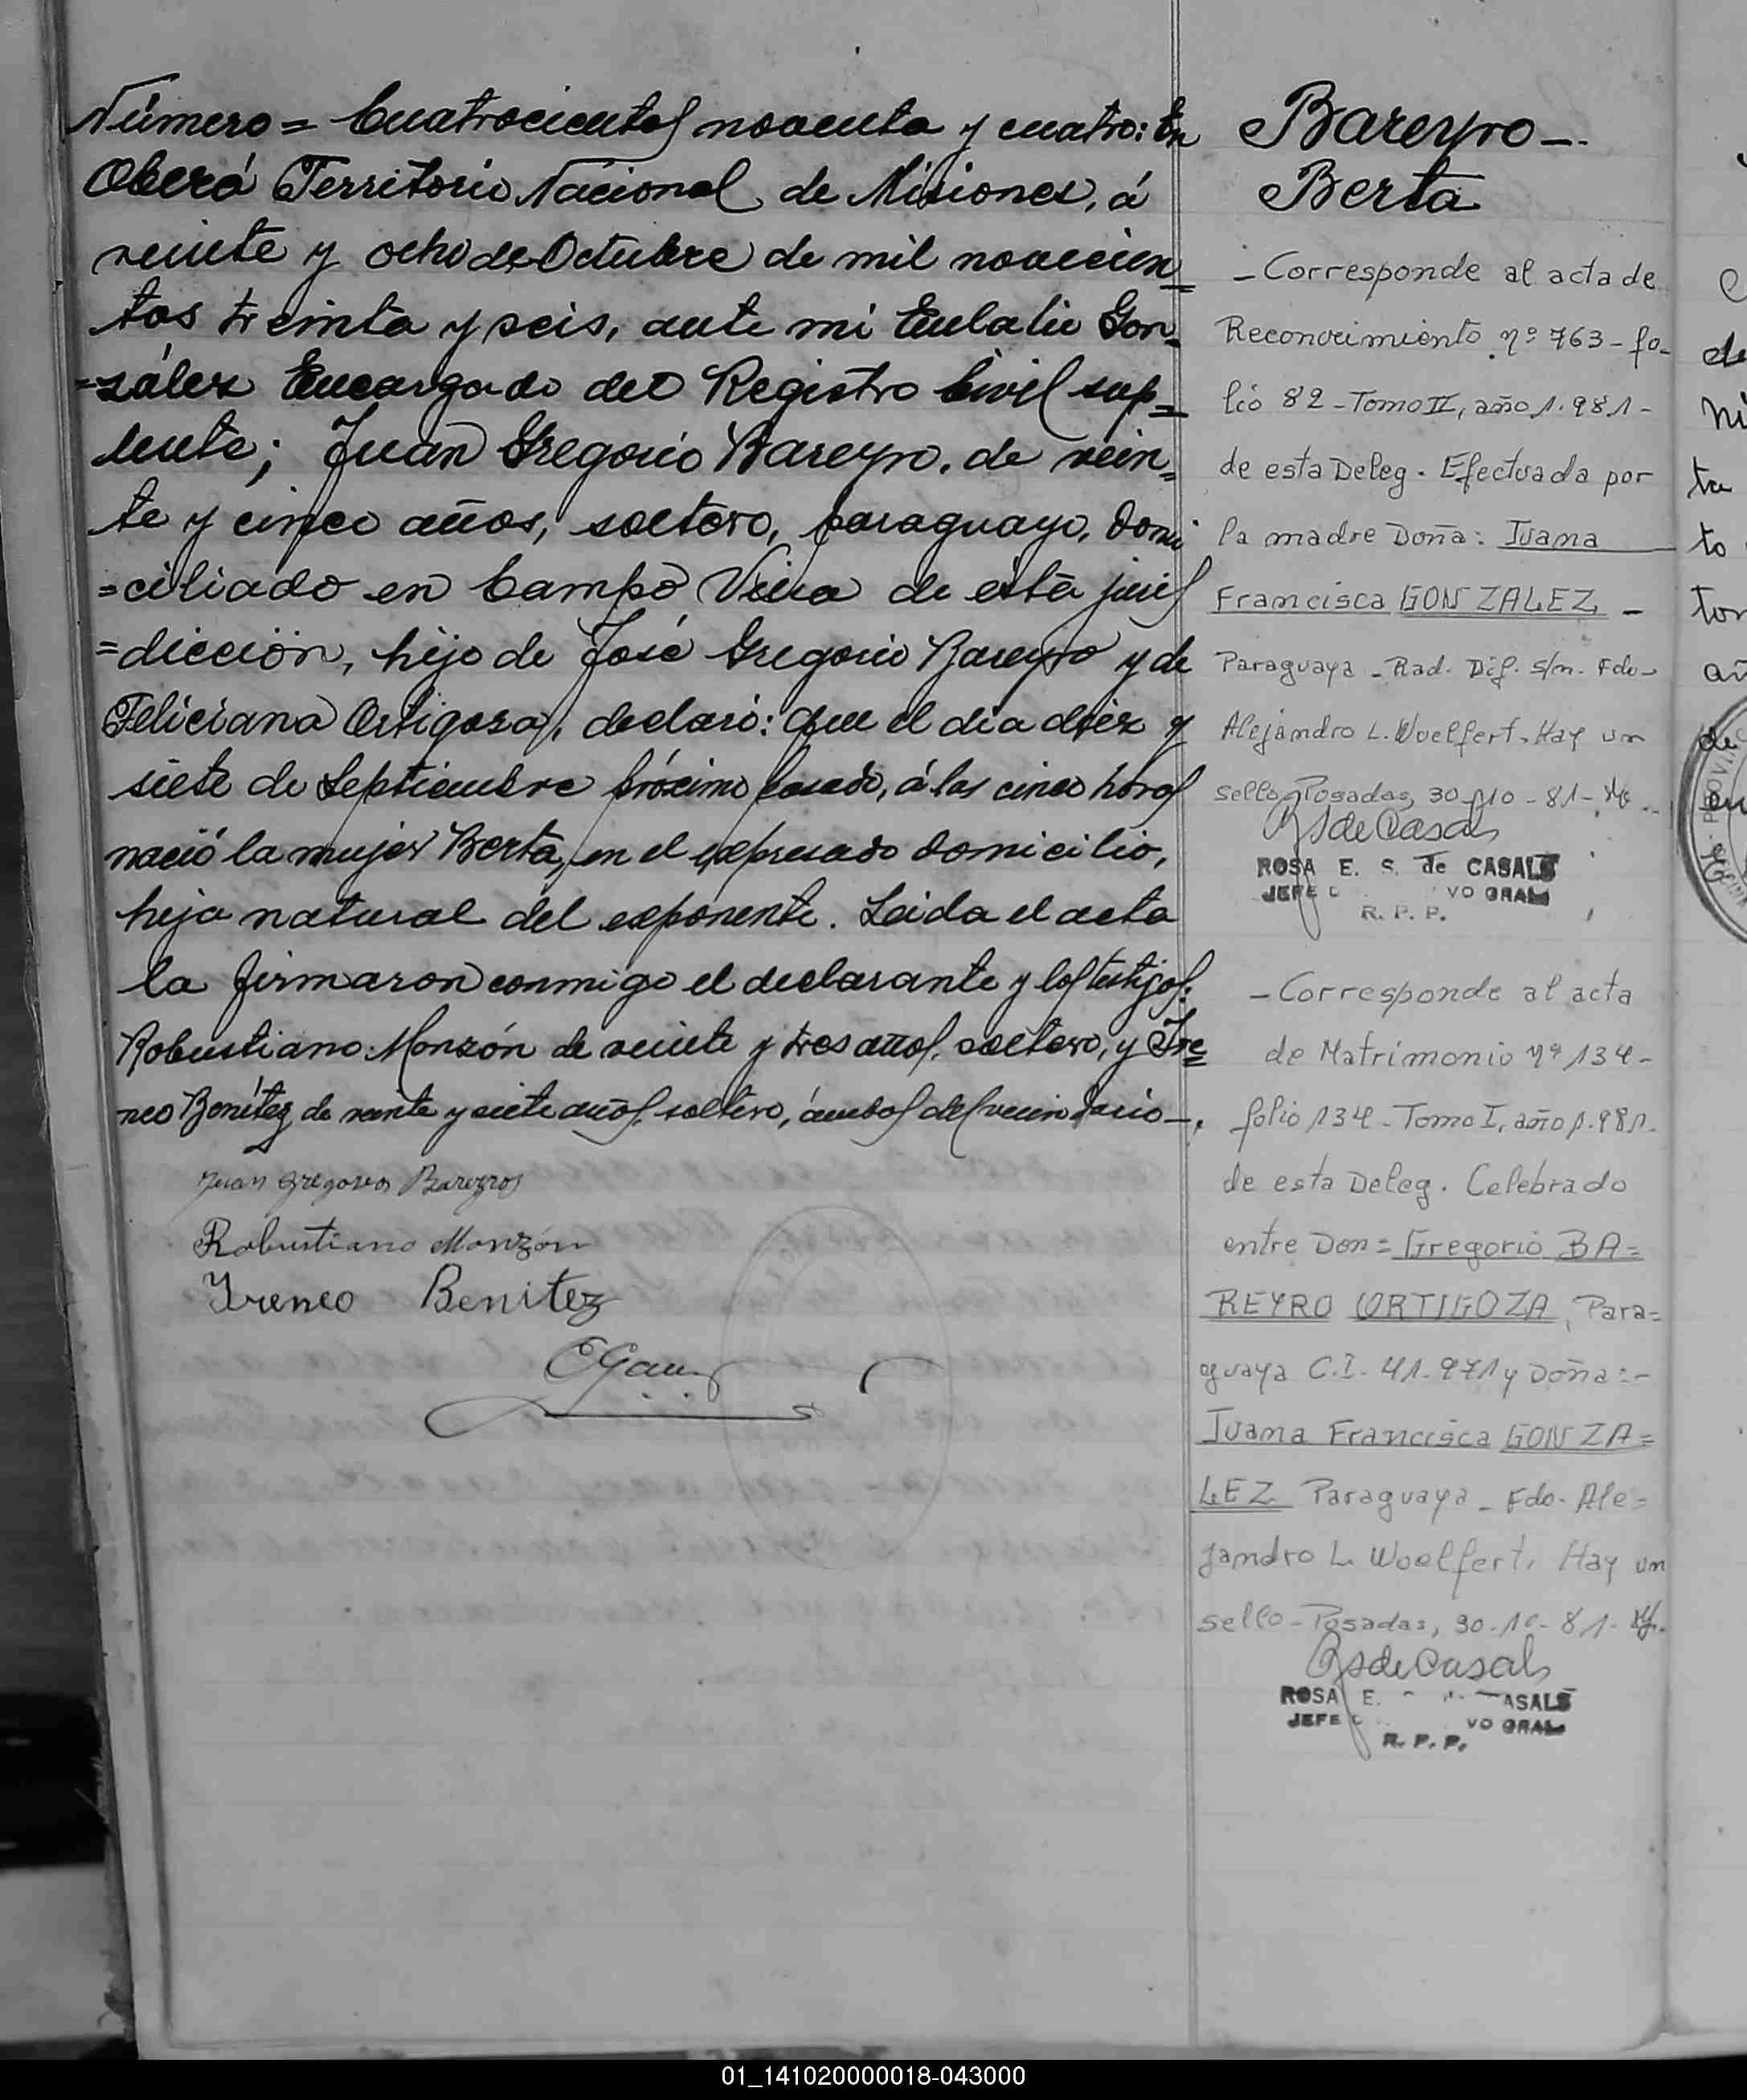 Número = Cuatrocientos noventa y cuatro: En
Oberá Territorio Nacional de Misiones, á
veinte y ocho de Octubre de mil novecien=
tos treinta y seis, ante mi Eulalio Gon=
=zález Encargado del Registro Civil sup=
lente; Juan Gregorio Bareyro, de vein=
te y cinco años, soltero, paraguayo, domi
=ciliado en Campo Viera de esta juris
=dicción, hijo de José Gregorio Bareyro y de
Feliciana Ortigosa, declaró: Que el día diez y
siete de Septiembre próximo pasado, á las cinco horas
nació la mujer Berta, en el expresado domicilio,
hija natural del exponente. Leida el acta
la firmaron conmigo el declarante y los testigos:
Robustiano Monzón de veinte y tres años, soltero, y Ire=
neo Benítez de veinte y siete años, soltero, ámbos del vecindario—.
Juan Gregorio Bareyro
Robustiano Monzón
Ireneo Benitez
Bareyro—.
Berta
— Corresponde al acta de
Reconocimiento nº 763 - fo-
lio 82 - Tomo II, año 1.981 -
de esta Deleg. Efectuada por
la madre Doña: Juana
Francisca GONZALEZ —
Paraguaya - Rad. Dif. s/n. Fdo-
Alejandro L. Woelfert. Hay un
sello Posadas, 30-10-81-
RS de Casals
ROSA E. S. de CASALS
JEFE D VO GRAL
R. P. P.
— Corresponde al acta
de Matrimonio nº 134 -
folio 134 - Tomo I, año 1.981.
de esta Deleg. Celebrado
entre Don = Gregorio BA=
REYRO ORTIGOZA, Para=
guaya C.I. 41.971 y Doña:-
Juana Francisca GONZA=
LEZ Paraguaya - Fdo. Ale=
jandro L. Woelfert. Hay un
sello - Posadas, 30-10-81-
RS de Casals
ROSA E. ASALS
JEFE VO GRAL
R. P. P.
01_141020000018-043000